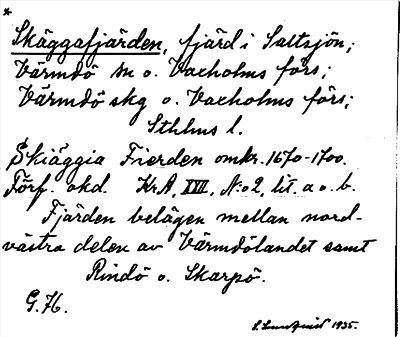 *
Skäggafjärden, fjärd i Saltsjön;
Värmdö sn o. Vaxholms förs;
Värmdö skg o. Vaxholms förs;
Sthlms l.
Skiäggia Fierden omkr. 1670-1700.
Förf. okd. KrA, XXII, No 2, lit. a o. b.
Fjärden belägen mellan nord-
västra delen av Värmdölandet samt
Rindö o. Skarpö.
G. H.
1935.